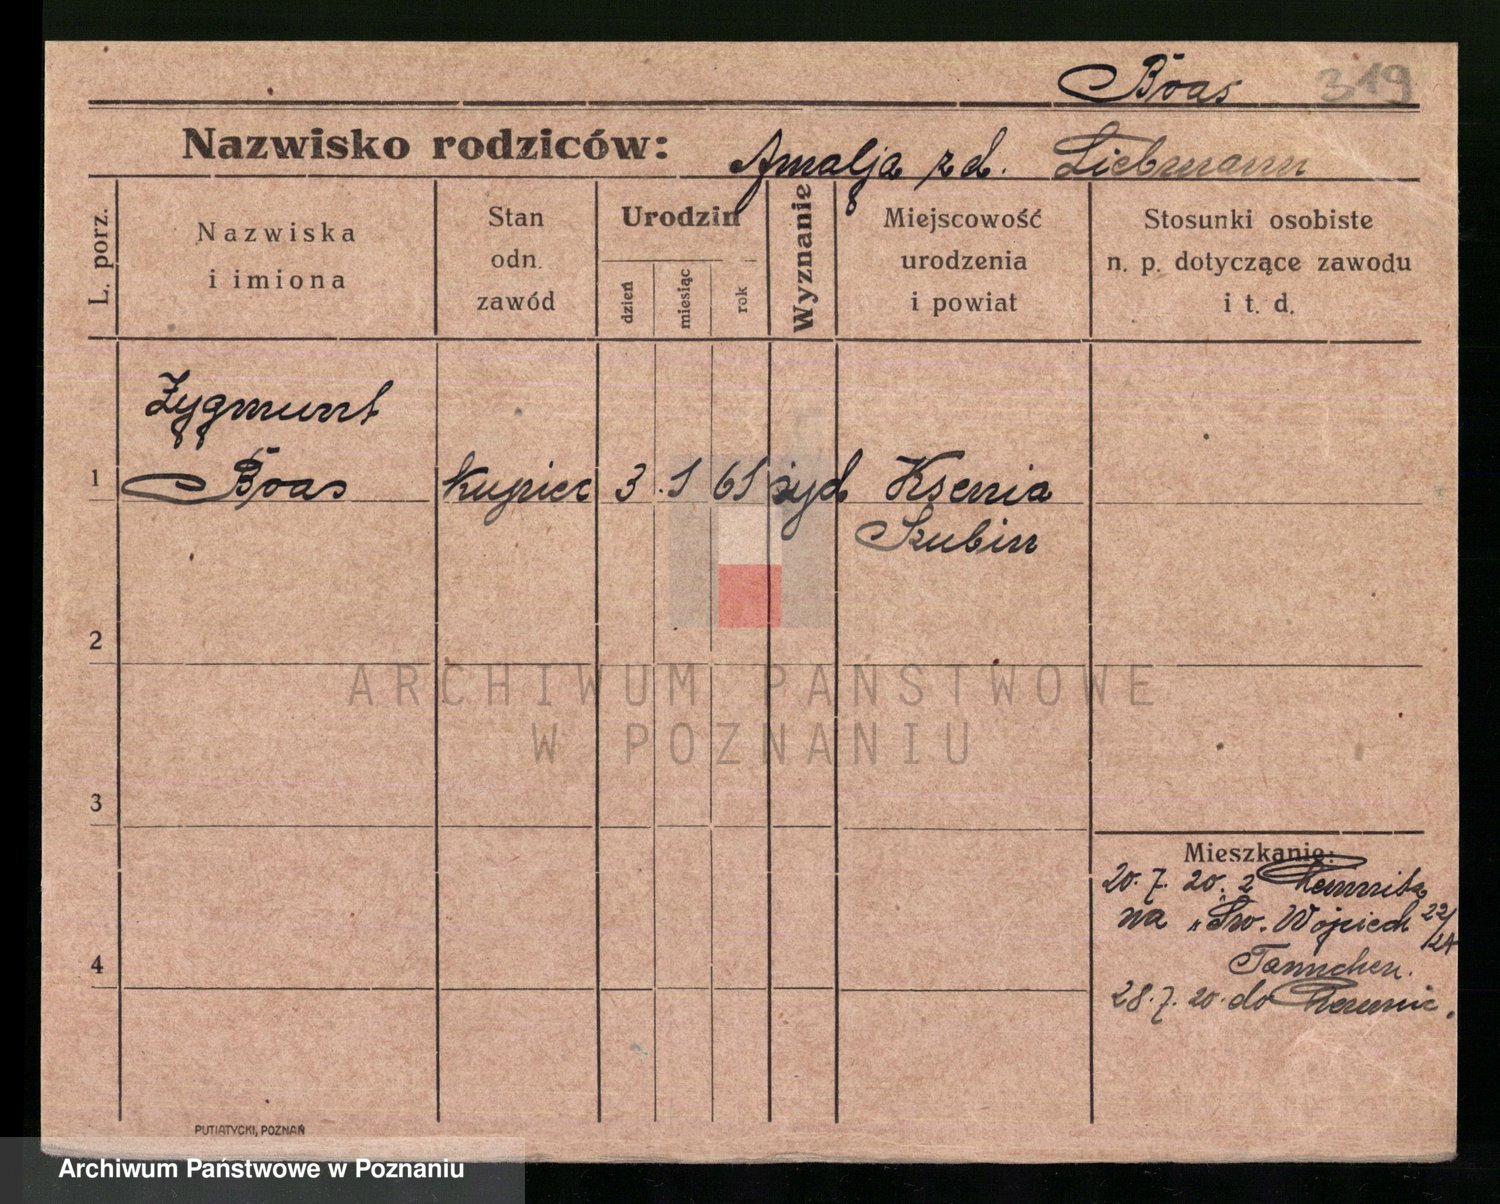 Boas 319
Nazwisko rodziców: Amalja z d. Liebmann
L. porz.
Nazwiska
i imiona
Stan
odn.
zawód
Urodzin
dzień
miesiąc
rok
Wyznanie
Miejscowość
urodzenia
i powiat
Stosunki osobiste
n. p. dotyczące zawodu
i t. d.
Zygmunt
1 Boas kupiec 3 1 61 żyd Ksenia
Szubin
2
3
4
Mieszkanie:
20. 7. 20. z Chemnitz
na „Św. Wojciech 22/
Tannchen.
28. 7. 20. do Chemnic.
PUTIATYCKI, POZNAŃ
ARCHIWUM PAŃSTWOWE
W POZNANIU
Archiwum Państwowe w Poznaniu